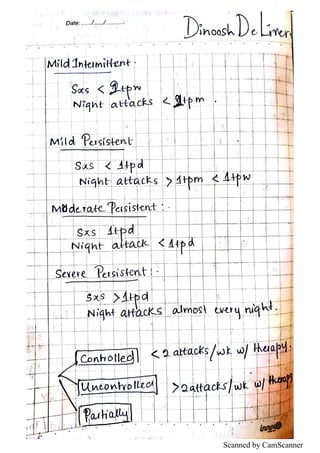 Date: ....../....../............
Dinoosh De Liver
Mild Intermittent
Sxs < 1tpw
Night attacks < 1tpm .
Mild Persistent
Sxs < 1tpd
Night attacks > 1tpm < 1tpw
Moderate Persistent : -
Sxs 1tpd
Night attack < 1tpd
Severe Persistent : -
Sxs > 1tpd
Night attacks almost every night.
Controlled < 2 attacks/wk w/ therapy.
Uncontrolled > 2 attacks/wk w/ therapy
Partially
Scanned by CamScanner